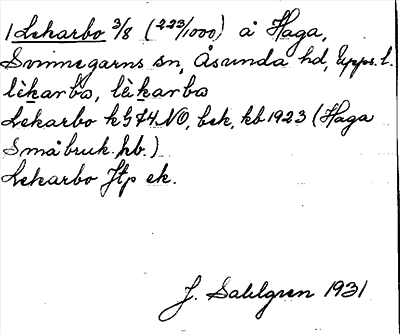 1 Lekarbo 3/8 (223/1000) å Haga,
Svinnegarns sn, Åsunda hd, Upps. l.
lèkarbo, lèkarbo
Lekarbo kG74NO, bek, kb 1923 (Haga
Småbruk. kb.)
Lekarbo Jfp ek.
J. Sahlgren 1931